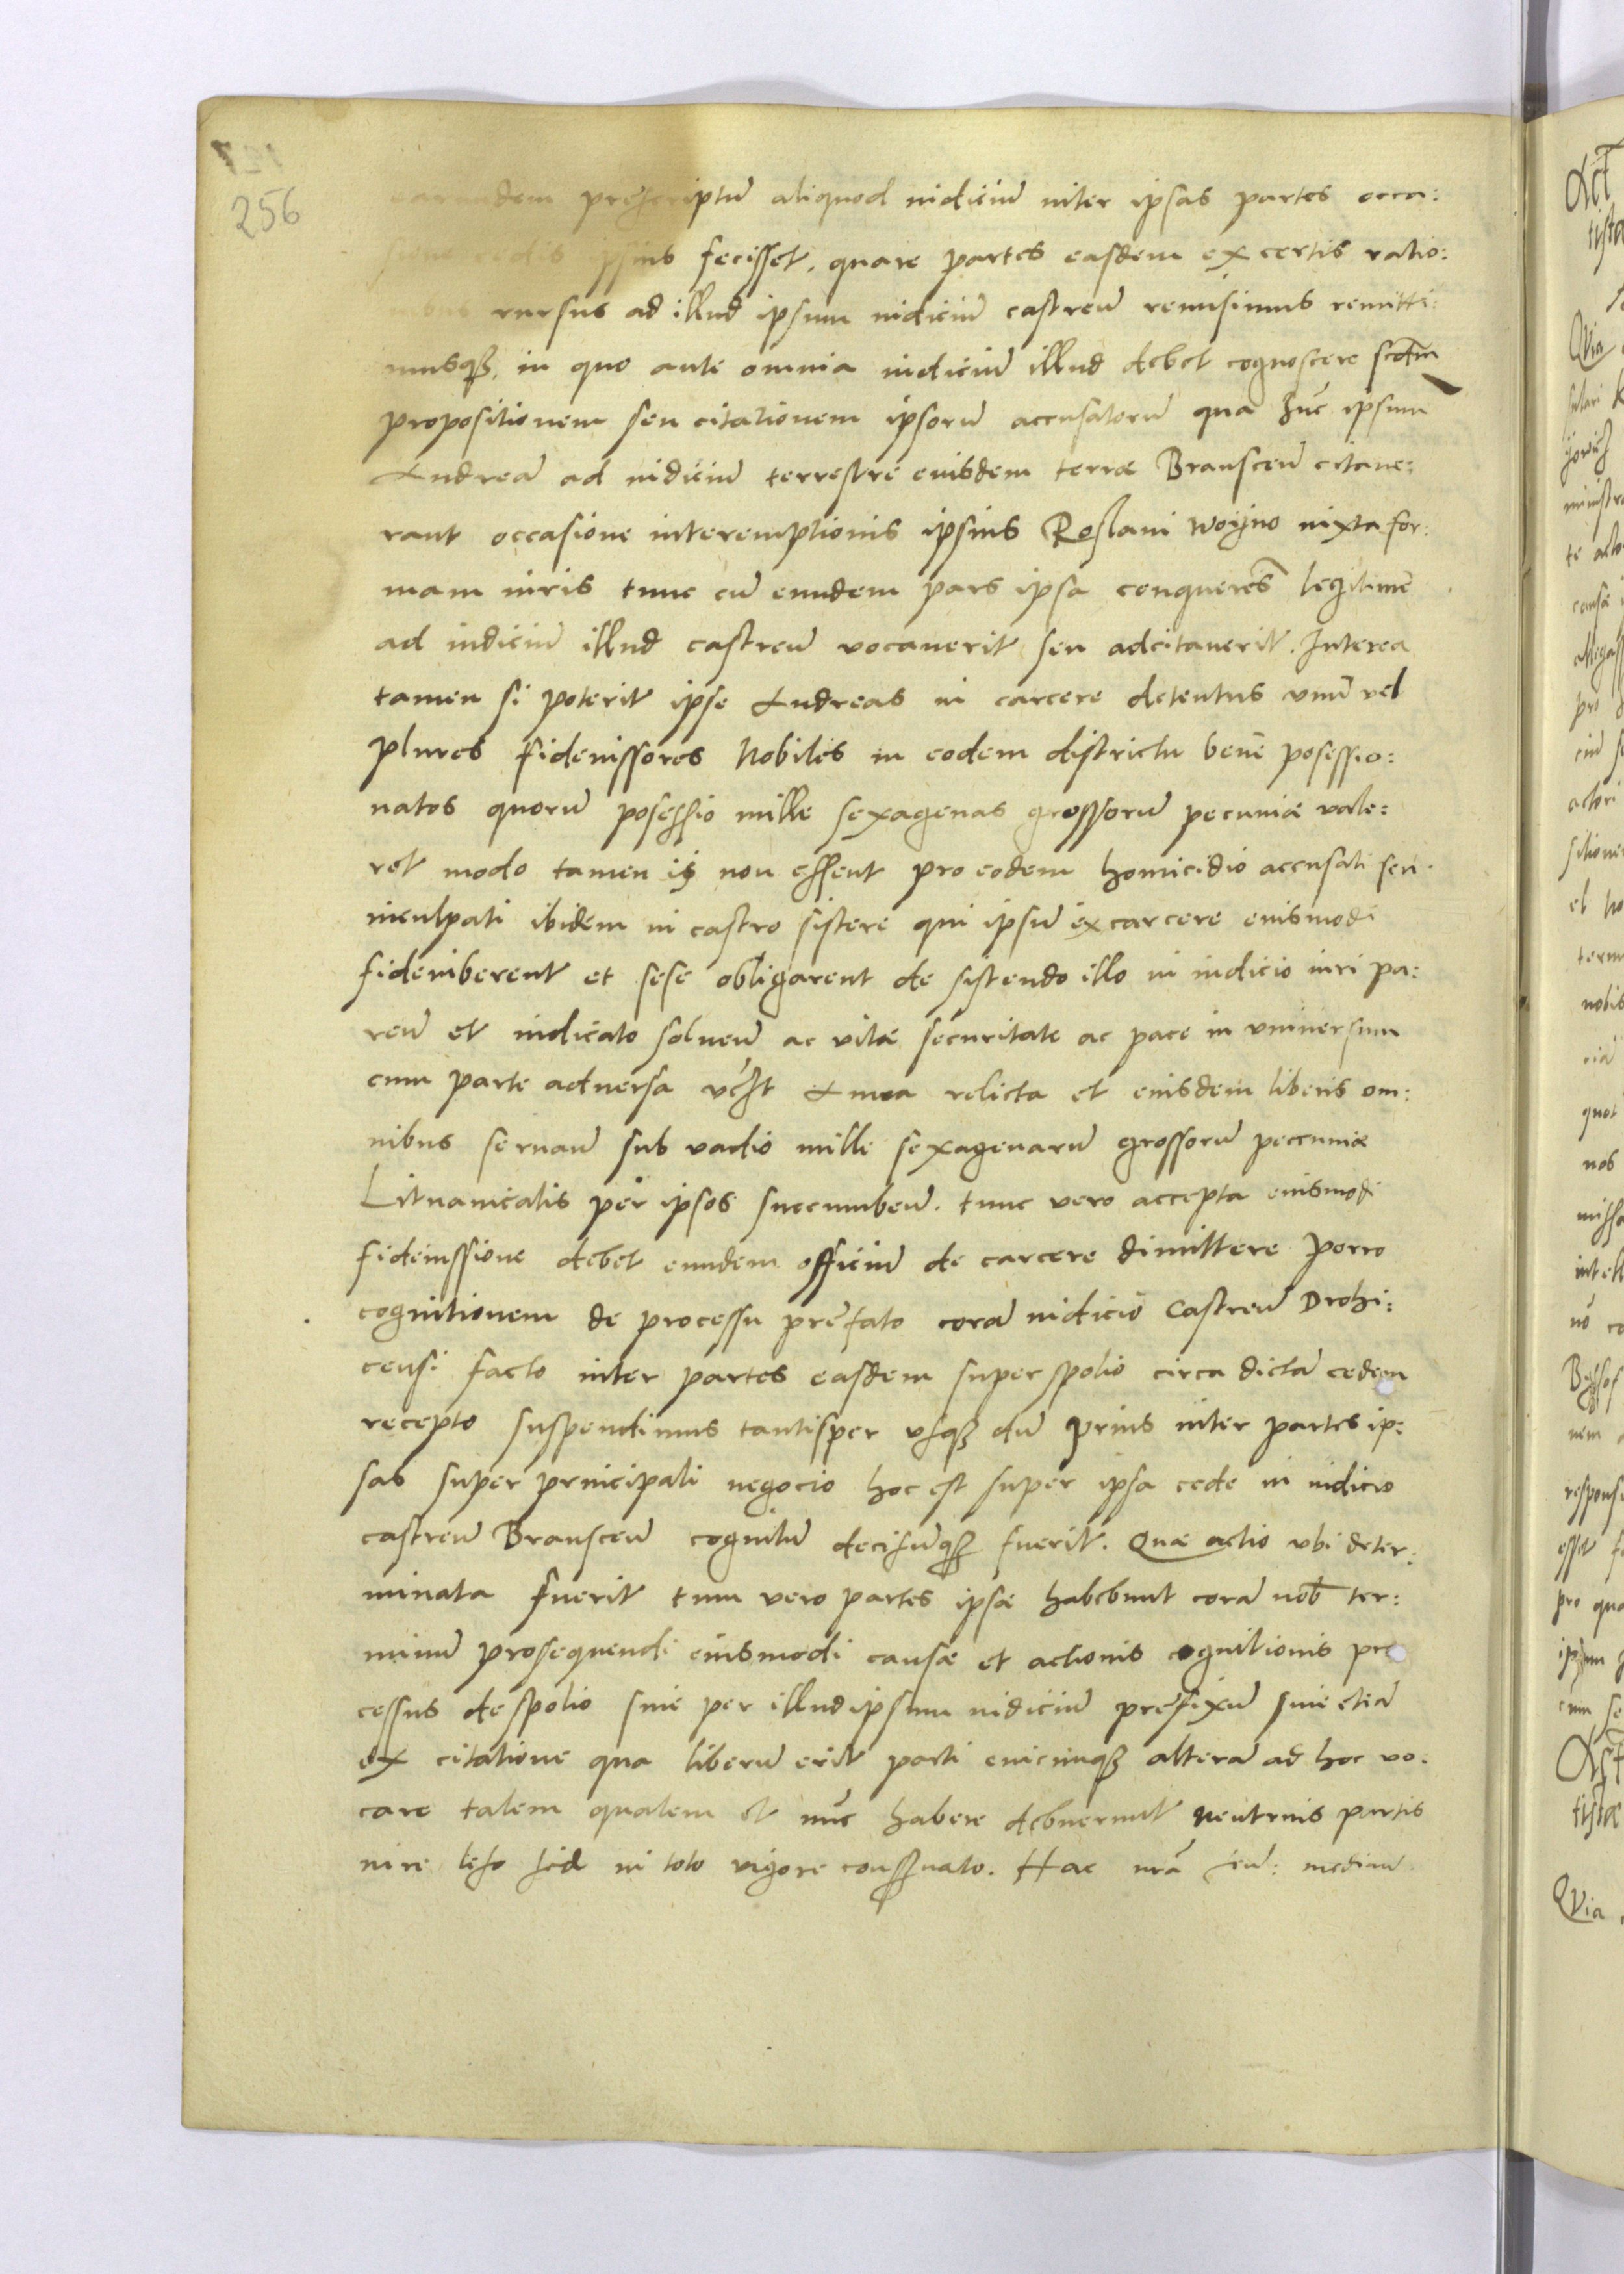 256
earundem prescriptũ aliquod iudiciũ inter ipsas partes occa:
sione cedis ipsius fecisset, quare partes easdem ex certis ratio:
nibus rursus ad illud ipsum iudiciũ castreñ remisimus remitti:
musqȝ, in quo ante omnia iudiciũ illud debet cognoscere scđm
propositionem seu citationem ipsorũ accusatorũ qua hũc ipsum
Andreã ad iudiciũ terrestre eiusdem terræ Branscen̄ citaue:
rant occasione interemptionis ipsius Roslani Woijno iuxta for:
mam iuris tunc cũ eundem pars ipsa conquerẽs legitimẽ
ad iudiciũ illud castreñ vocauerit seu adcitauerit. Interea
tamen si poterit ipse Andreas in carcere detentus vnũ vel
plures fideiussores Nobiles in eodem districtu benẽ posessio:
natos quorũ posessio mille sexagenas grossorũ pecuniæ vale:
ret modo tamen ij non essent pro eodem homicidio accusati seu
inculpati ibidem in castro sistere qui ipsũ ex carcere eiusmodi
fideiuberent et sese obligarent de sistendo illo in iudicio iuri pa:
reñ et iudicato solueñ ac vitæ securitate ac pace in vniuersum
cum parte aduersa vcȝt Anna relicta et eiusdem liberis om:
nibus seruañ sub vadio mille sexagenarũ grossorũ peccuniæ
Lituanicalis per ipsos succumbeñ. tunc vero accepta eiusmodi
fideiussione debet eundem officiũ de carcere dimittere Porro
cognitionem de processu prefato corã iudicio Castreñ Drohi:
censi facto inter partes easdem super spolio circa dictã cedem
recepto suspendimus tantisper vsqȝ dũ prius inter partes ip:
sas super principali negocio hoc est super ipsa cede in iudicio
castreñ Branscen̄ cognitũ decisũqȝ fuerit. Quæ actio vbi deter:
minata fuerit tum vero partes ipsæ habebunt corã nob̄ ter:
minũ prosequendi eiusmodi causæ et actionis cognitionis pro
cessus de spolio siue per illud ipsum iudiciũ prefixũ siue etiã
ex citatione qua liberũ erit parti cuicunqȝ alterã ad hoc vo:
care talem qualem et nũc habere debuerunt neutrius partis
iure leso sed in toto vigore conseruato. Hac nr̃a señ: mediañ